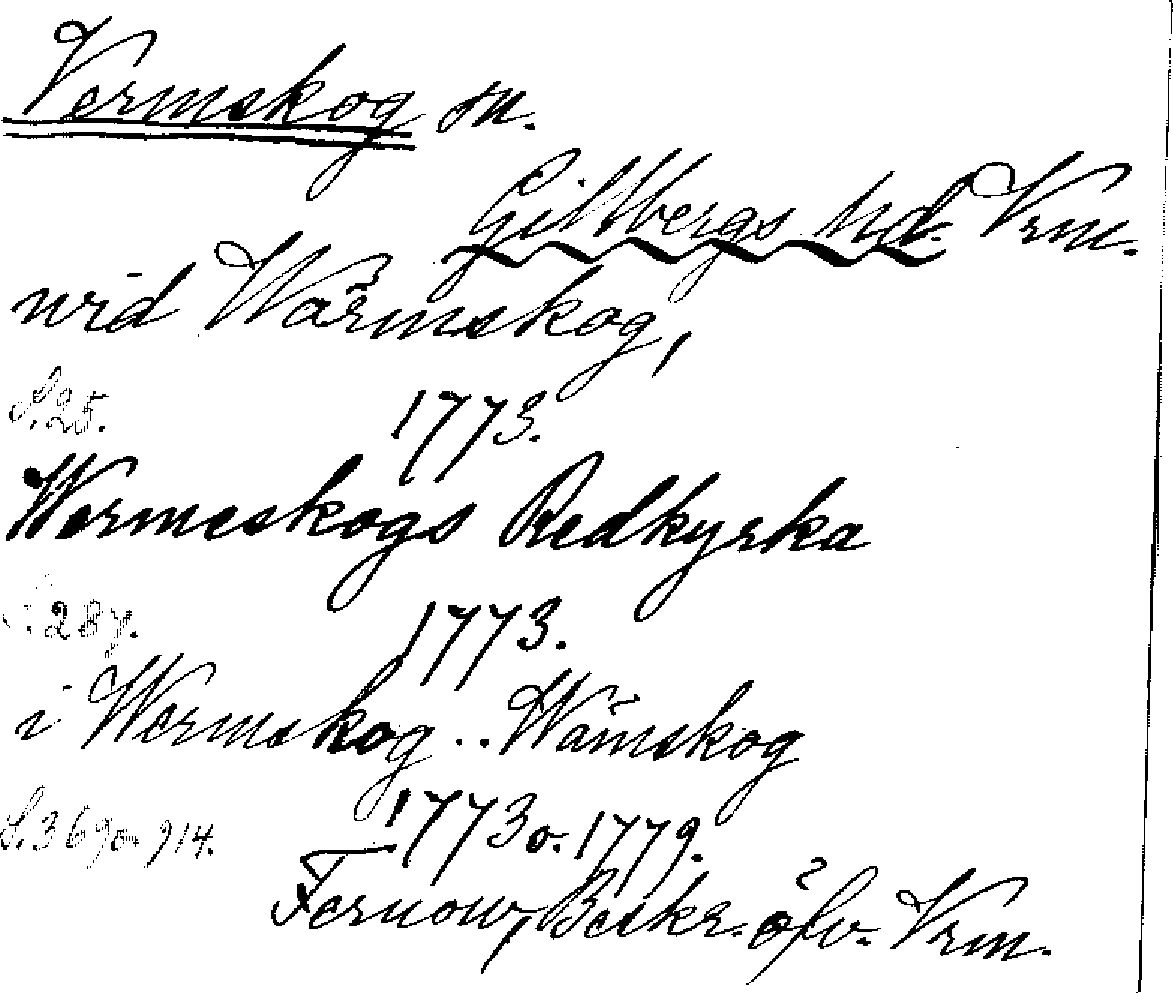 Vermskog sn.
Gillbergs hd. Vrm.
wid Wärmskog,
S. 25. 1773.
Wermeskogs Redkyrka
S. 287. 1773.
i Wermskog .. Wämskog
S. 369 o. 914. 1773 o. 1779.
Fernow, Beskr. öfv. Vrm.